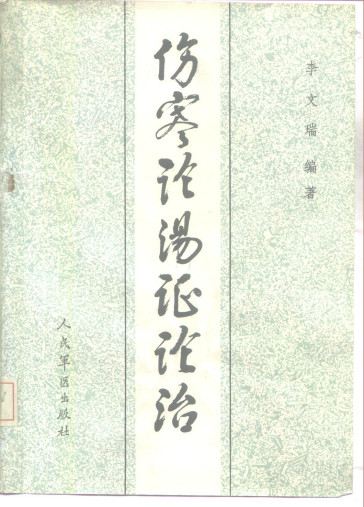 李文瑞 编著
伤寒论汤证论治
人民军医出版社